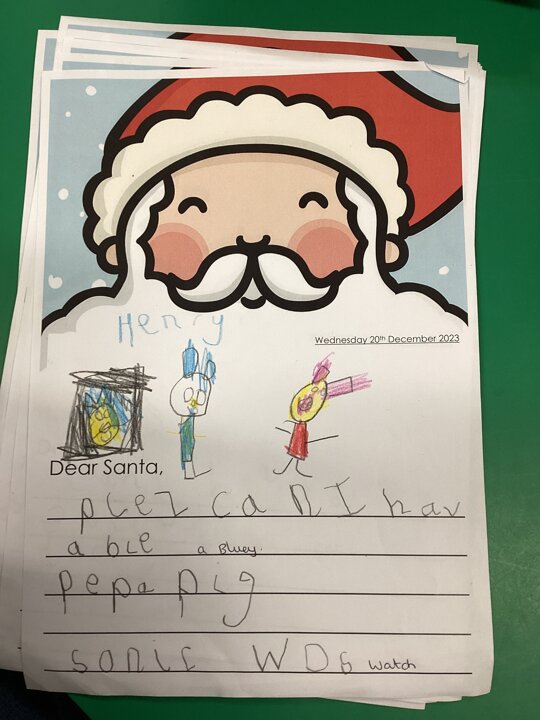 Henry
Wednesday 20th December 2023
Dear Santa,
plez can I hav
a ble a Bluey.
pepa pig
sonic WDG watch